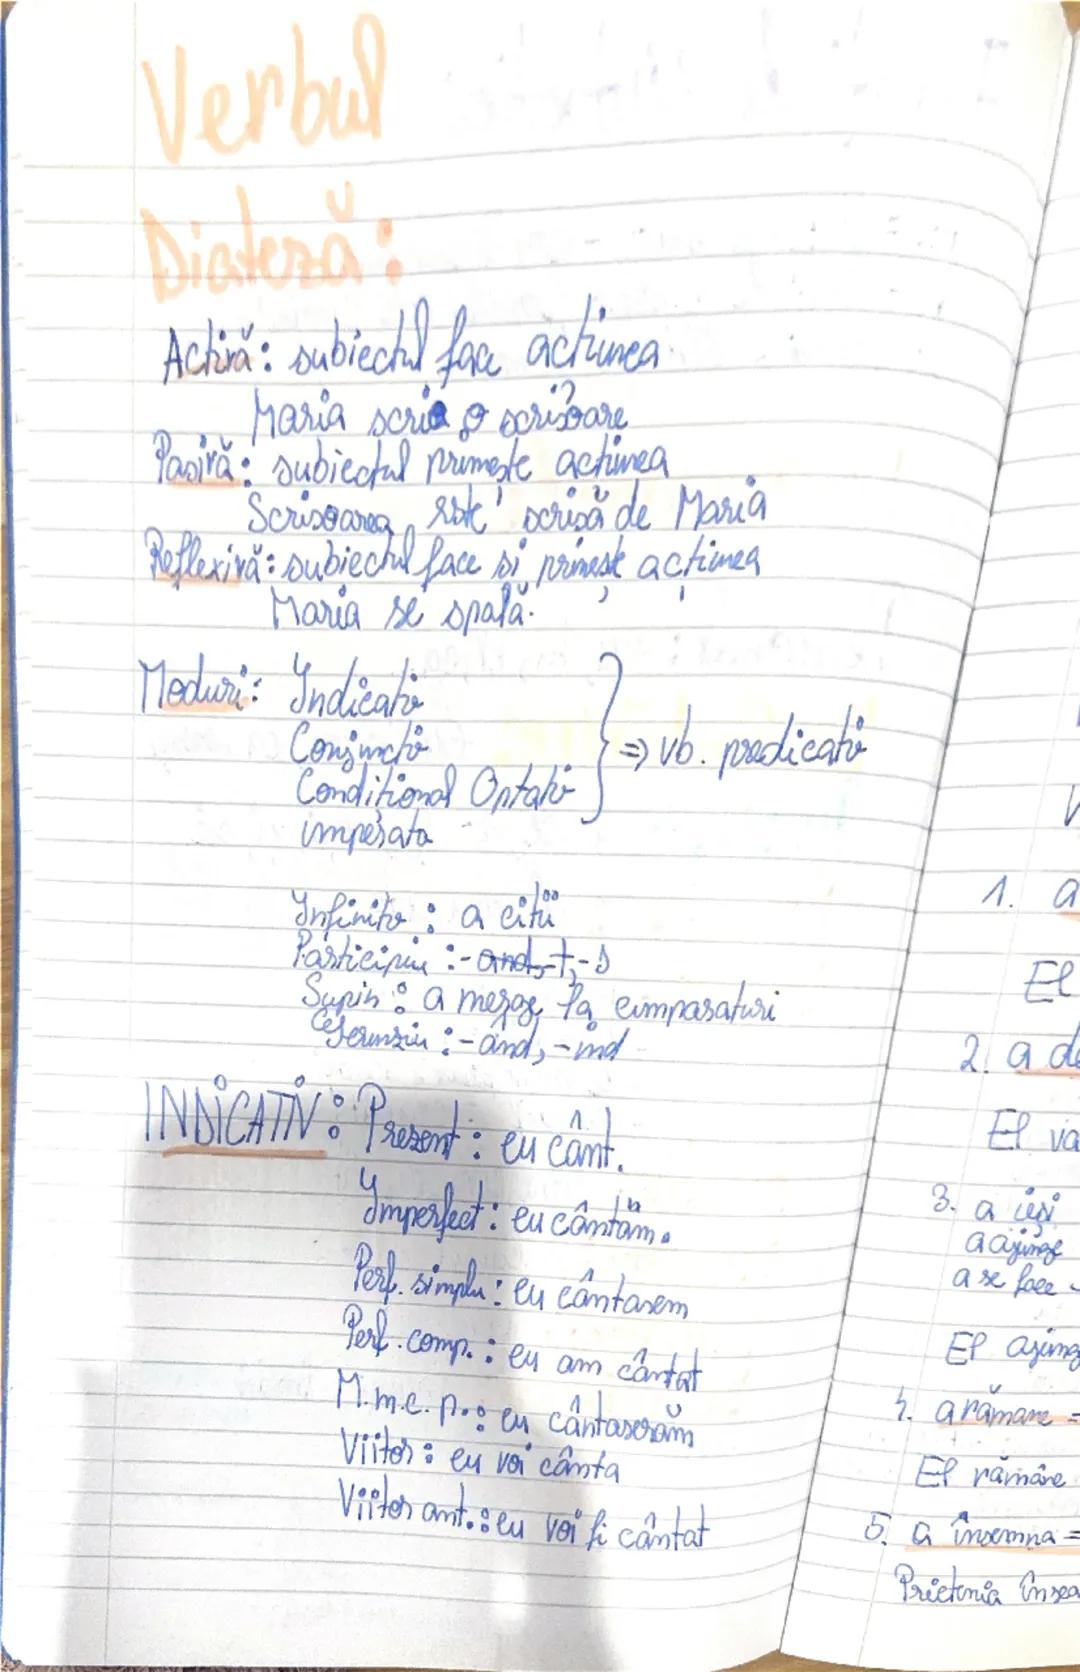 Verbul
Diateză:
Activă: subiectul face acțiunea
Maria scrie o scrisoare
Pasivă: subiectul primește acțiunea
Scrisoarea este scrisă de Maria
Reflexivă: subiectul face și primește acțiunea
Maria se spală.
Moduri: Indicativ
Conjunctiv
=> vb. predicativ
Condițional Optativ
imperativ
Infinitiv: a citii
Participiu: -and, -t, -s
Supin: a merge la cumparaturi
Gerunziu: -ând, -ind
INDICATIV: Prezent: eu cânt.
Imperfect: eu cântam.
Perf. simplu: eu cântasem
Perf. comp.: eu am cântat
M.m.c.p.: eu cântaserăm
Viitor: eu voi cânta
Viitor ant.: eu voi fi cântat
1. a
El
2. a de
El va
3. a ieși
a ajunge
a se face
El ajung
4. a rămane =
El rămâne
5. a însemna =
Prietenia însea